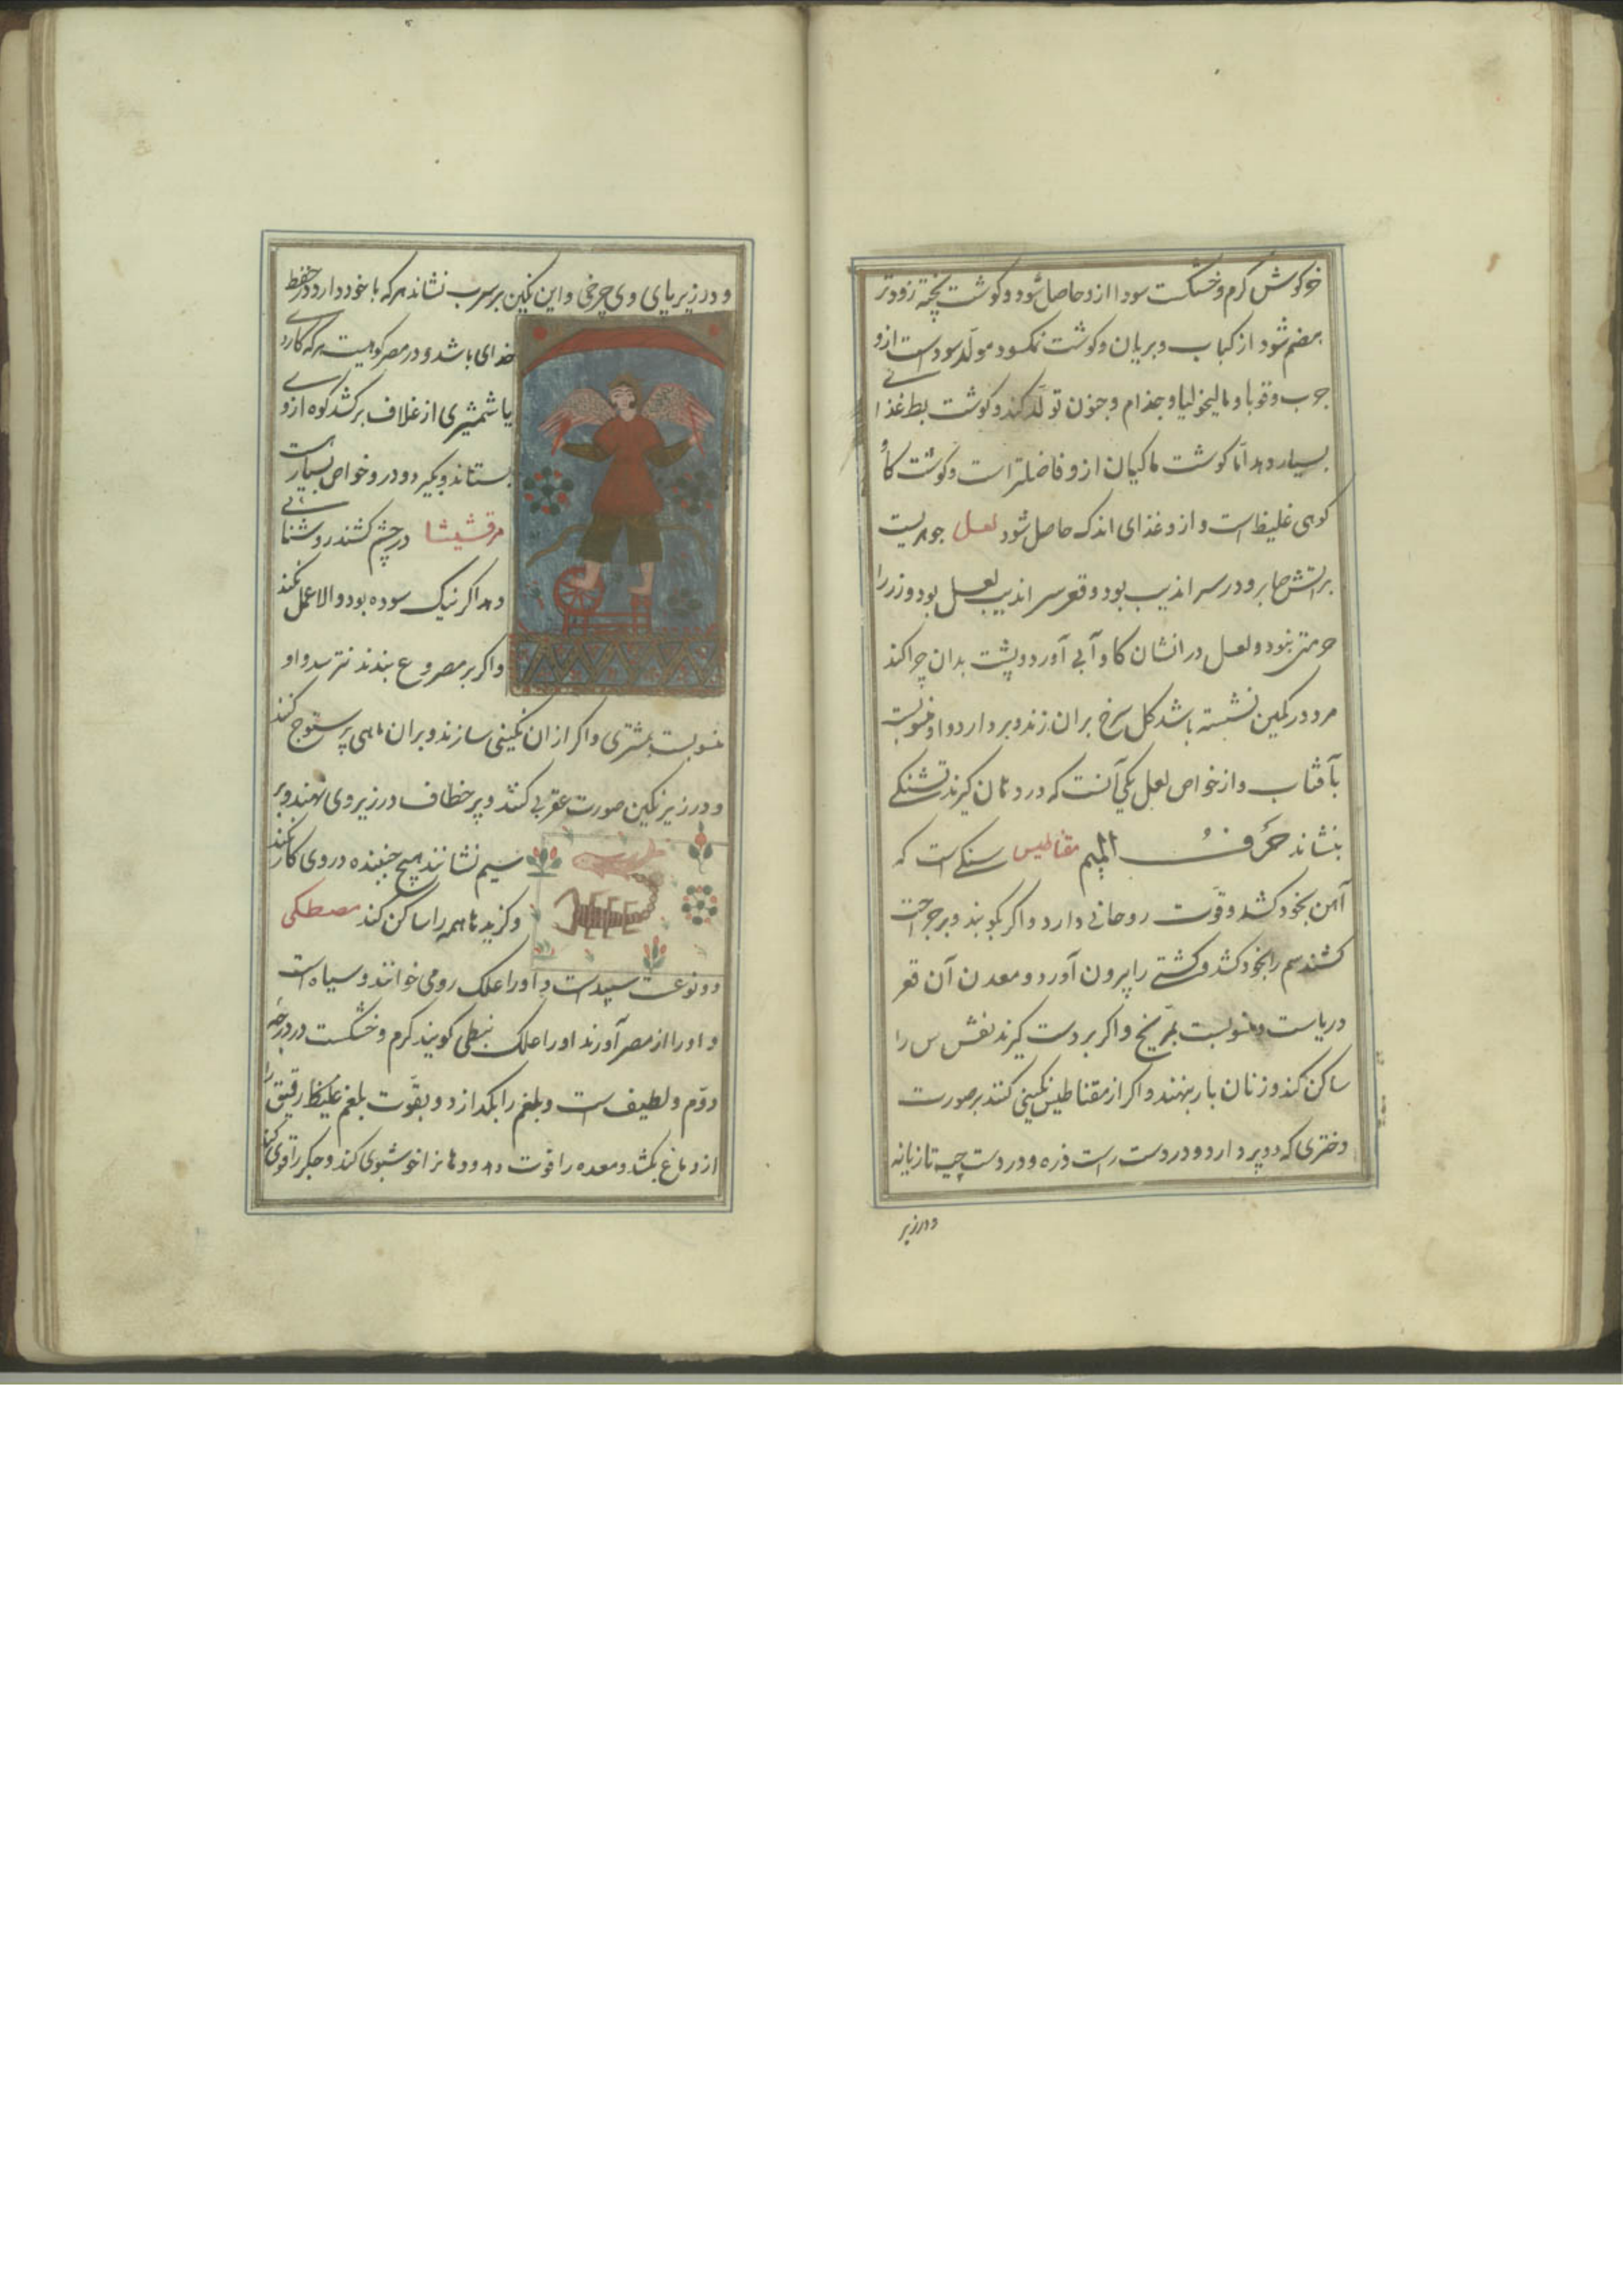 خرکوش کرم و خشکست سودا ازو حاصل شود و کوشت پخته زودتر
هضم شود از کباب و بریان و کوشت نمکسود مولد سوداست ازو
جرب و قوبا و مالیخولیا و جذام و جنون تولّد کند و کوشت بط غذائی
بسیار دهد امّا کوشت ماکیان ازو فاضلتر است و کوشت کاو
کوهی غلیظ است و ازو غذای اندک حاصل شود لعل جوهریست
بر آتش صابر و در سراندیب بود و قعر سراندیب لعل بود و زر را
حرمتی نبود و لعل در انشان کاو آبی آورد و پشت بدان چرا کند
مرد در کمین نشسته باشد کل سرخ بران زند و بردارد و او منسوبست
بآفتاب و از خواص لعل یکی آنست که در دهان کیرند تشنکی
بنشاند حرف المیم مقناطیس سنکی است که
آهن بخود کشد و قوّت روحانی دارد و اکر بکوبند و بر جراحت
کشند سم را بخود کشد و کشتی را بیرون آورد و معدن آن قعر
دریاست و منسوبست بمرّیخ و اکر بر دست کیرند نقرس را
ساکن کند و زنان بار بنهند و اکر از مقناطیس نکینی کنند بر صورت
دختری که دو پر دارد و در دست راست ذره و در دست چپ تازیانه
و در زیر
و در زیر پای وی چرخی و این نکین بر سرب نشاند هر که با خود دارد در حفظ
خدای باشد و در مصر کوهیست هر که کاردی
یا شمشیری از غلاف برکشد کوه ازو
بستاند و بکیرد و در و خواص بسیارست
مرقشیشا در چشم کشند روشنائی
دهد اکر نیک سوده بود و الا عمل نکند
و اکر بر مصروع بندند نترسد و او
منسوبست بمشتری و اکر از ان نکینی سازند و بران ماهی پرستوج کنند
و در زیر نکین صورت عقربی کنند و پر خطاف در زیر وی نهند و بر
سیم نشانند هیچ جنبنده در وی کار نکند
و کزیدها همه را ساکن کند مصطکی
دو نوعست سپیدست و او را علک رومی خوانند و سیاه است
و او را از مصر آورند او را علک نبطی کویند کرم و خشکست در درجهٔ
دوّم و لطیف است و بلغم را بکدازد و بقوّت بلغم غلیظ رقیق را
از دماغ بکشد و معده را قوت دهد و دهانرا خوشبوی کند و جکر را قوی کند